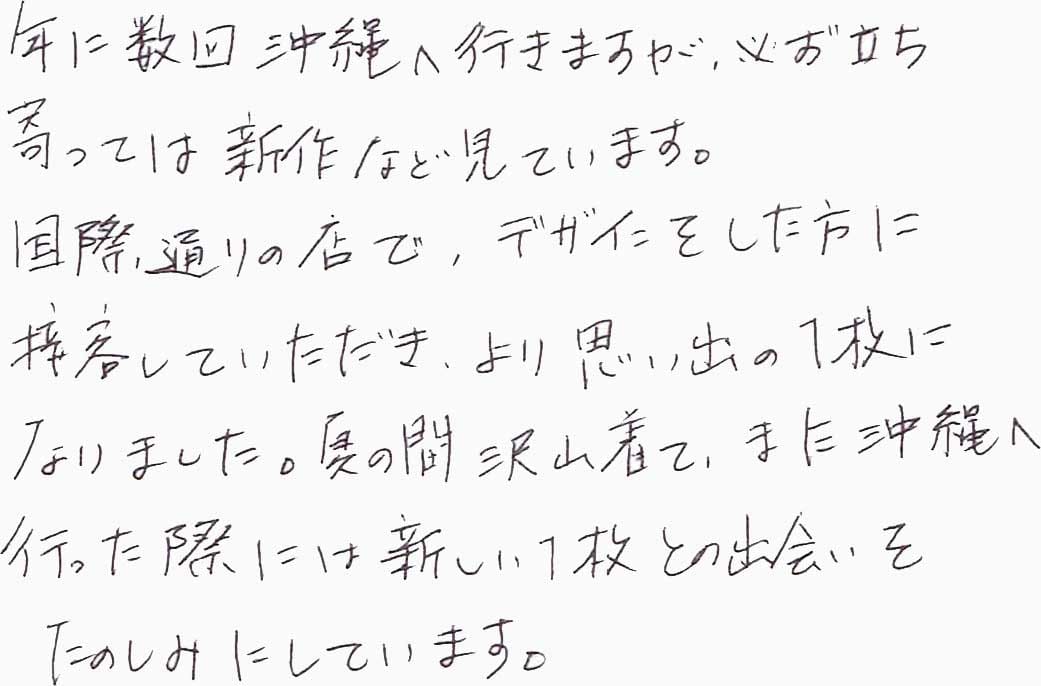 年に数回沖縄へ行きますが、必ず立ち
寄っては新作など見ています。
国際通りの店で、デザインをした方に
接客していただき、より思い出の1枚に
なりました。夏の間沢山着て、また沖縄へ
行った際には新しい1枚との出会いを
たのしみにしています。